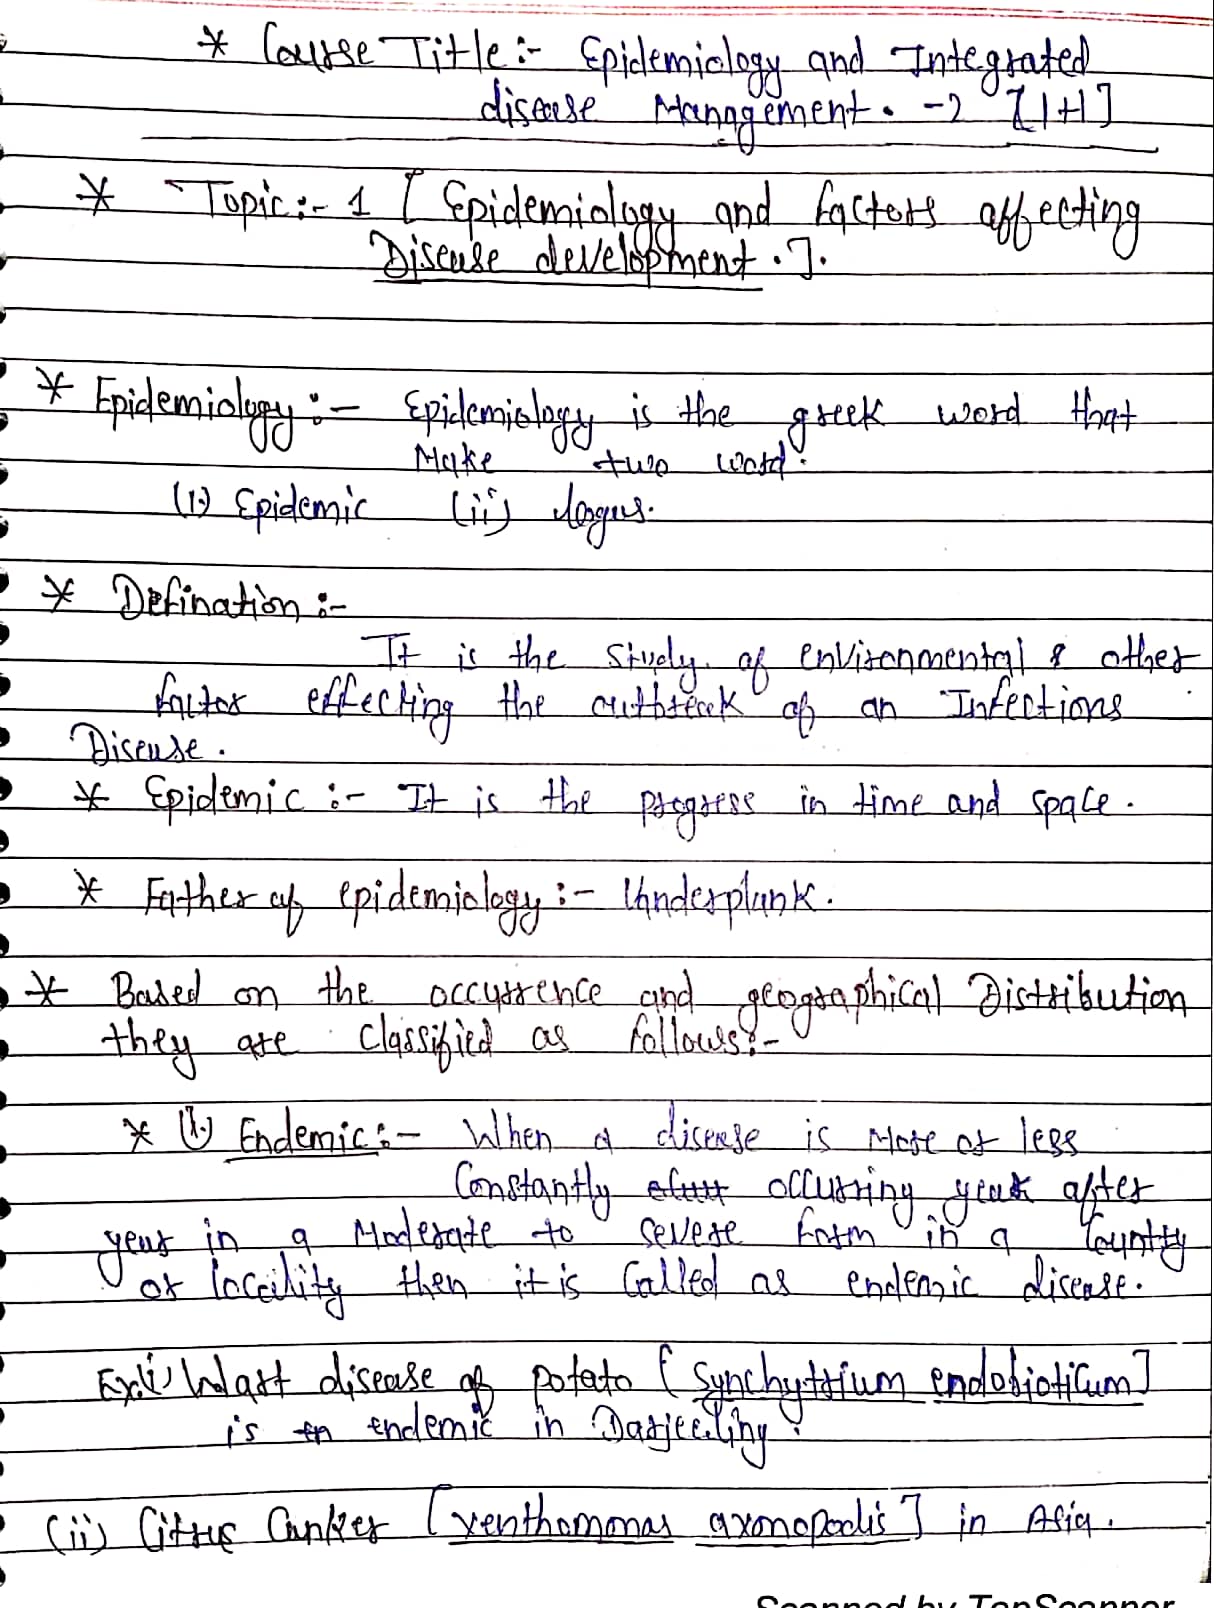 * Course Title :- Epidemiology and Integrated
disease Management. -2 [1+1]
* Topic :- 1 [ Epidemiology and factors affecting
Disease development. ].
* Epidemiology :- Epidemiology is the greek word that
Make two word.
(i.) Epidemic (ii) logus.
* Defination :-
It is the study of environmental & other
factor effecting the outbreak of an Infections
Disease.
* Epidemic :- It is the progress in time and space.
* Father of epidemiology :- Vanderplank.
* Based on the occurrence and geographical Distribution
they are classified as follows :-
* (i.) Endemic :- When a disease is More or less
Constantly occurring year after
year in a Moderate to severe form in a Country
or locality then it is Called as endemic disease.
Ex:(i) Wart disease of potato [ Synchytrium endobioticum ]
is endemic in Darjeeling.
(ii) Citrus Canker [ xenthomonas axonopodis ] in Asia.
Scanned by TapScanner